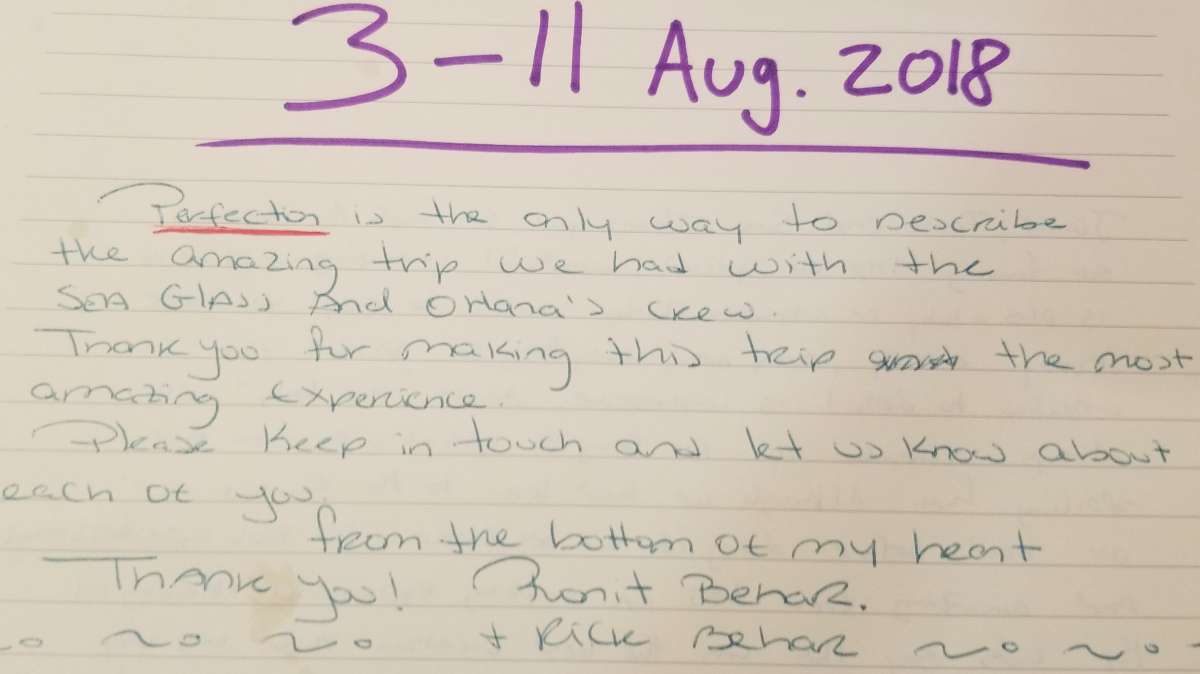 3-11 Aug. 2018
Perfection is the only way to Describe
the amazing trip we had with the
SEA GLASS And Ohana's crew.
Thank you for making this trip the most
amazing Experience.
Please keep in touch and let us know about
each of you.
from the bottom of my heart
Thank you! Ronit Behar.
+ Rick Behar